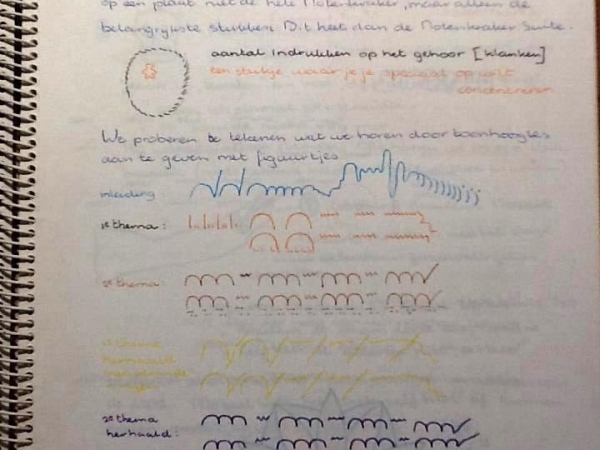 op een plaat niet de hele Notenkraker, maar alleen de
belangrijkste stukken. Dit heet dan de Notenkraker Suite.
aantal indrukken op het gehoor [klanken]
een stukje waar je je speciaal op wilt
concentreren
We proberen te tekenen wat we horen door toonhoogtes
aan te geven met figuurtjes
inleiding:
1e thema:
2e thema:
1e thema
herhaald
2e thema
herhaald: